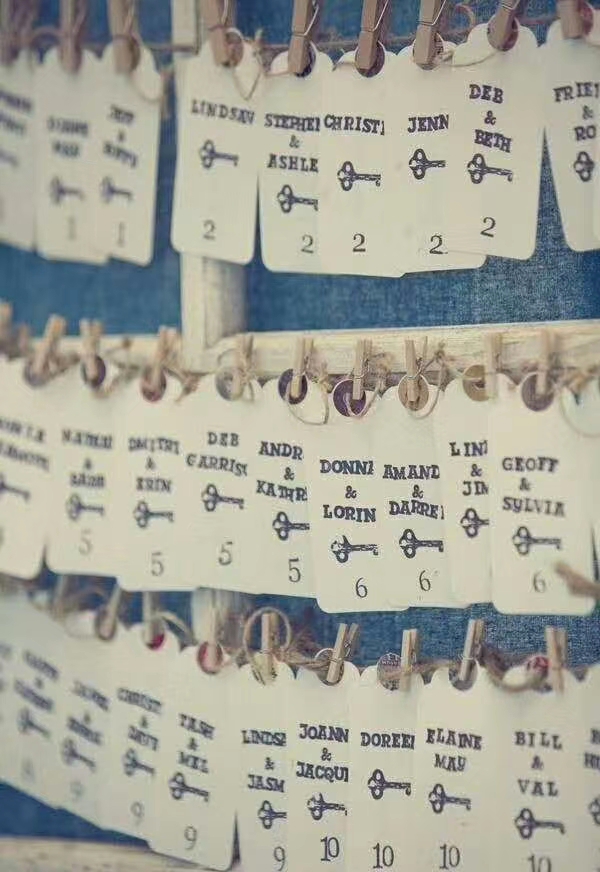 1
1
LINDSAY
2
STEPHEN
&
ASHLE
2
CHRISTI
2
JENN
2
DEB
&
BETH
2
FRIE
&
RO
&
5
DMITRI
&
ERIN
5
DEB
GARRIS
5
ANDR
&
KATHR
5
DONNA
&
LORIN
6
AMAND
&
DARRE
6
LIN
&
JIM
GEOFF
&
SYLVIA
6
9
CHRIST
&
9
TASH
&
MEL
9
LINDSE
&
JASM
9
JOANN
&
JACQUI
10
DOREEN
10
ELAINE
MAY
10
BILL
&
VAL
10